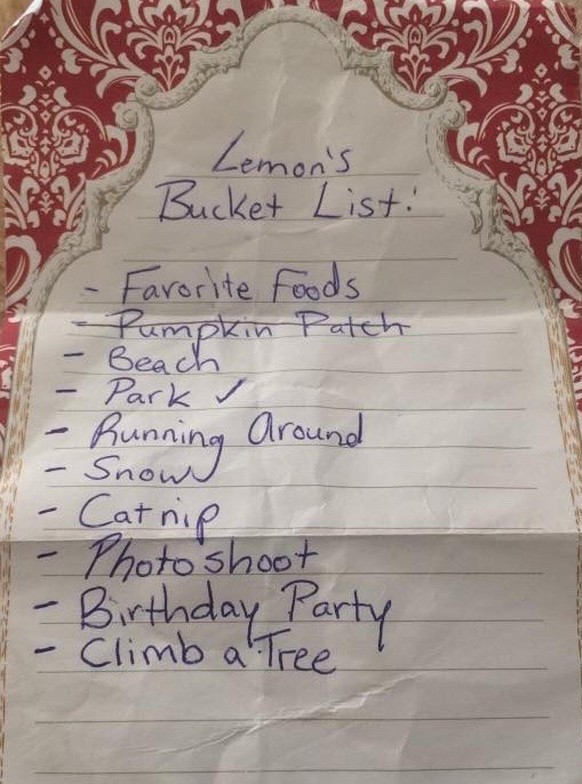 Lemon's
Bucket List:
- Favorite Foods
- Pumpkin Patch
- Beach
- Park ✓
- Running Around
- Snow
- Catnip
- Photo shoot
- Birthday Party
- Climb a Tree